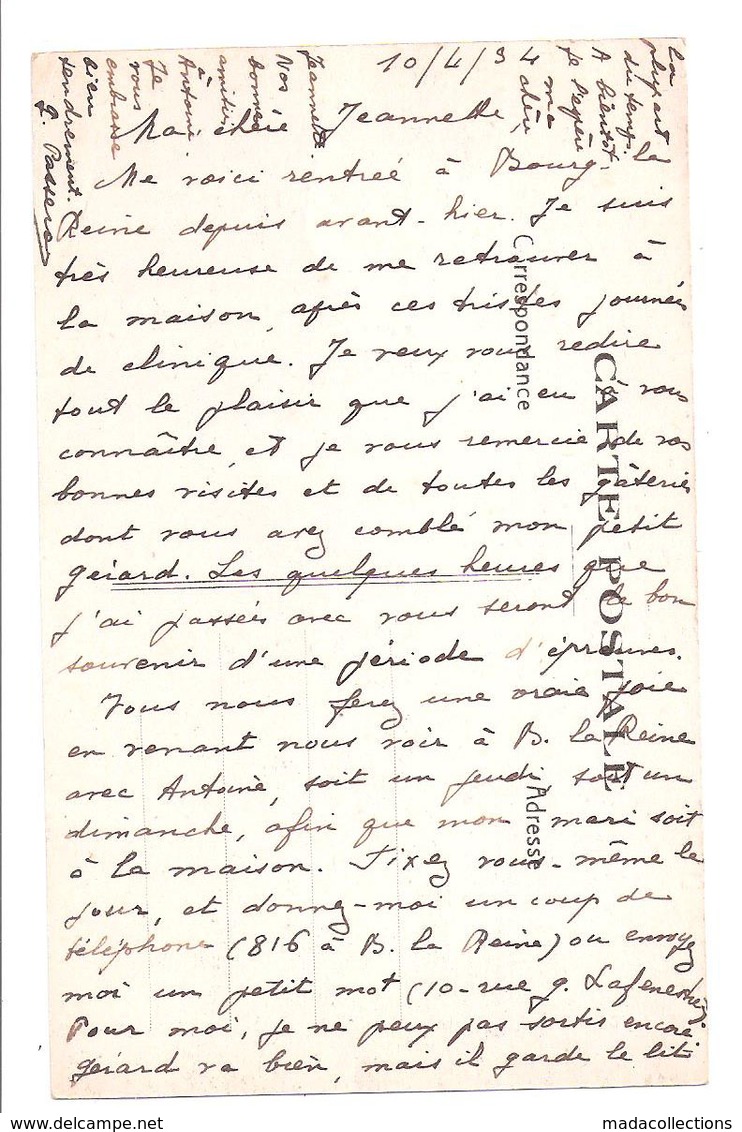 10/4/34
Ma chère Jeannette,
Me voici rentrée à Bourg-la
Reine depuis avant-hier. Je suis
très heureuse de me retrouver à
la maison, après ces tristes journées
de clinique. Je veux vous redire
tout le plaisir que j'ai eu à vous
connaître, et je vous remercie de vos
bonnes visites et de toutes les gâteries
dont vous avez comblé mon petit
gérard. Les quelques heures que
j'ai passées avec vous seront le bon
souvenir d'une période d'épreuves.
Vous nous ferez une vraie joie
en venant nous voir à B. la Reine
avec Antoine, soit un jeudi soit un
dimanche, afin que mon mari soit
à la maison. Fixez vous-même le
jour, et donnez-moi un coup de
téléphone (816 à B. la Reine) ou envoyez
moi un petit mot (10-rue g. Lafenestre).
Pour moi, je ne peux pas sortir encore
gérard va bien, mais il garde le lit
la
plupart
du temps.
A bientôt
je l'espère
ma
chère
Jeannette.
Nos
bonnes
amitiés
à
Antoine
Je
vous
embrasse
bien
tendrement.
Correspondance
CARTE POSTALE
Adresse
madacollections